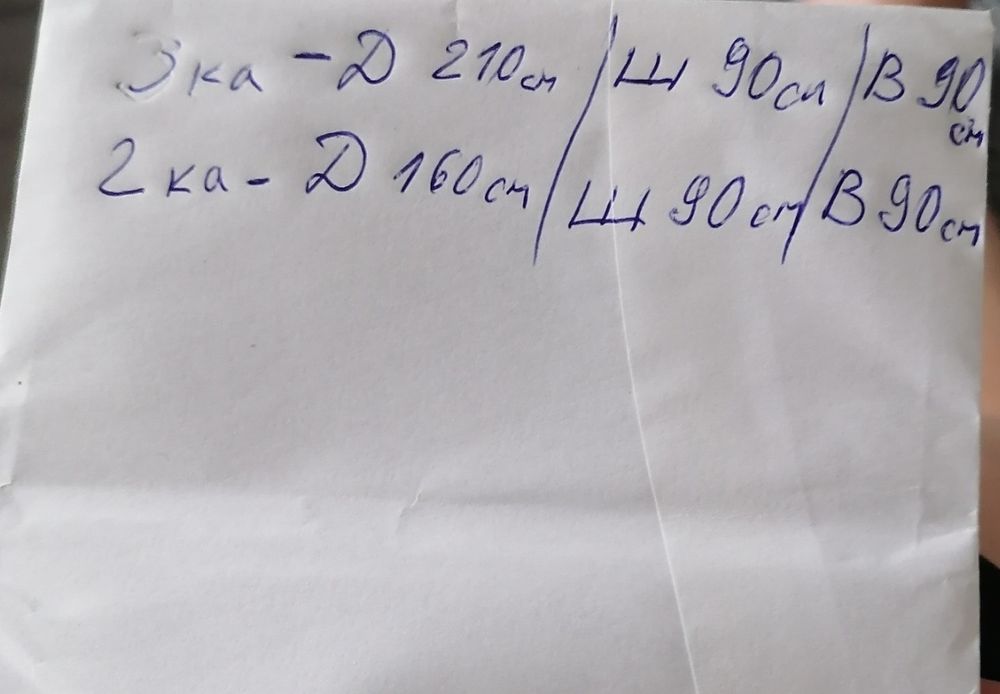 3 ка - Д 210 см / Ш 90 см / В 90 см
2 ка - Д 160 см / Ш 90 см / В 90 см